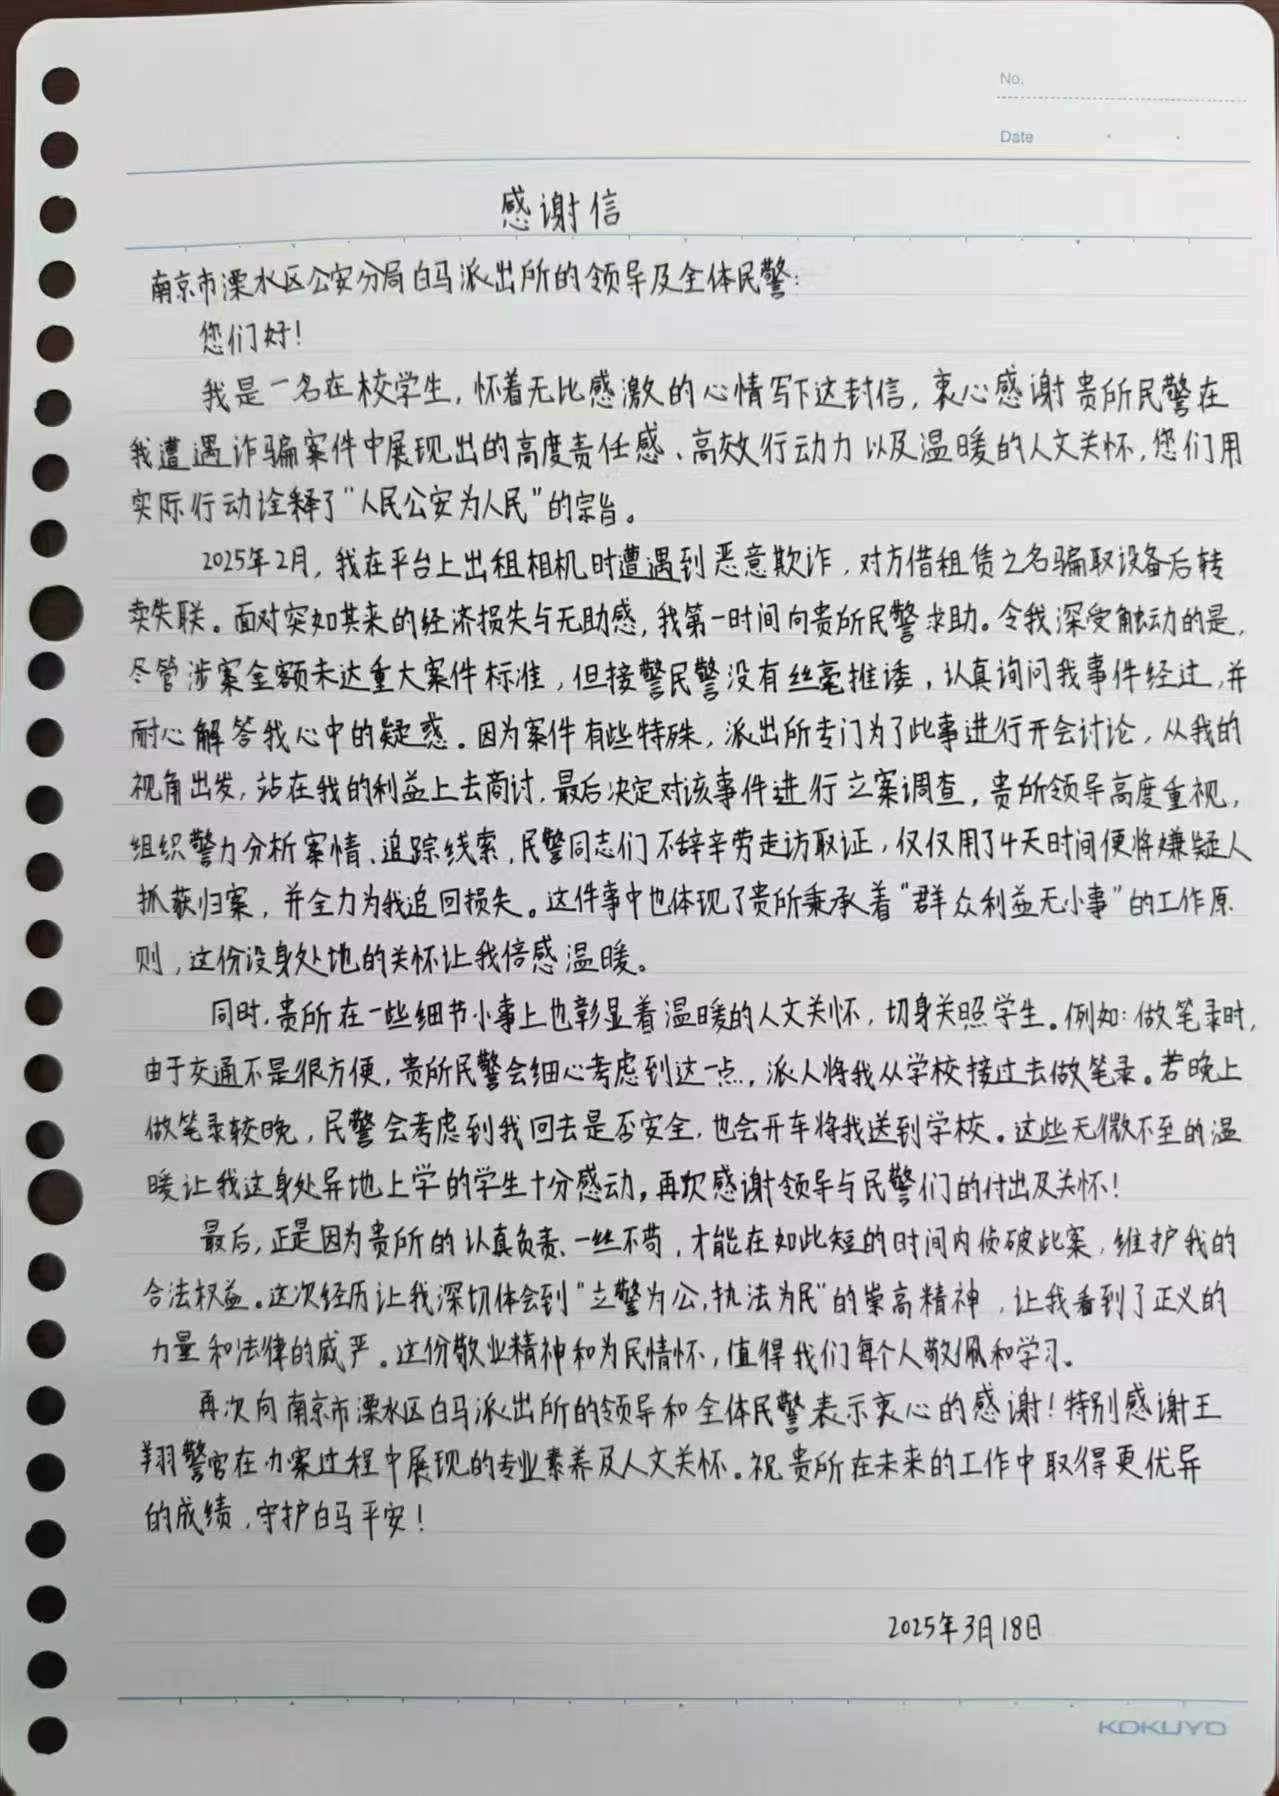 No.
Date
感谢信
南京市溧水区公安分局白马派出所的领导及全体民警:
您们好!
我是一名在校学生,怀着无比感激的心情写下这封信,衷心感谢贵所民警在
我遭遇诈骗案件中展现出的高度责任感、高效行动力以及温暖的人文关怀,您们用
实际行动诠释了“人民公安为人民”的宗旨。
2025年2月,我在平台上出租相机时遭遇到恶意欺诈,对方借租赁之名骗取设备后转
卖失联。面对突如其来的经济损失与无助感,我第一时间向贵所民警求助。令我深受触动的是,
尽管涉案金额未达重大案件标准,但接警民警没有丝毫推诿,认真询问我事件经过,并
耐心解答我心中的疑惑。因为案件有些特殊,派出所专门为了此事进行开会讨论,从我的
视角出发,站在我的利益上去商讨,最后决定对该事件进行立案调查,贵所领导高度重视,
组织警力分析案情、追踪线索,民警同志们不辞辛劳走访取证,仅仅用了4天时间便将嫌疑人
抓获归案,并全力为我追回损失。这件事中也体现了贵所秉承着“群众利益无小事”的工作原
则,这份设身处地的关怀让我倍感温暖。
同时,贵所在一些细节小事上也彰显着温暖的人文关怀,切身关照学生。例如:做笔录时,
由于交通不是很方便,贵所民警会细心考虑到这一点,派人将我从学校接过去做笔录。若晚上
做笔录较晚,民警会考虑到我回去是否安全,也会开车将我送到学校。这些无微不至的温
暖让我这身处异地上学的学生十分感动,再次感谢领导与民警们的付出及关怀!
最后,正是因为贵所的认真负责、一丝不苟,才能在如此短的时间内侦破此案,维护我的
合法权益。这次经历让我深切体会到“立警为公,执法为民”的崇高精神,让我看到了正义的
力量和法律的威严。这份敬业精神和为民情怀,值得我们每个人敬佩和学习。
再次向南京市溧水区白马派出所的领导和全体民警表示衷心的感谢!特别感谢王
翔警官在办案过程中展现的专业素养及人文关怀。祝贵所在未来的工作中取得更优异
的成绩,守护白马平安!
2025年3月18日
KOKUYO